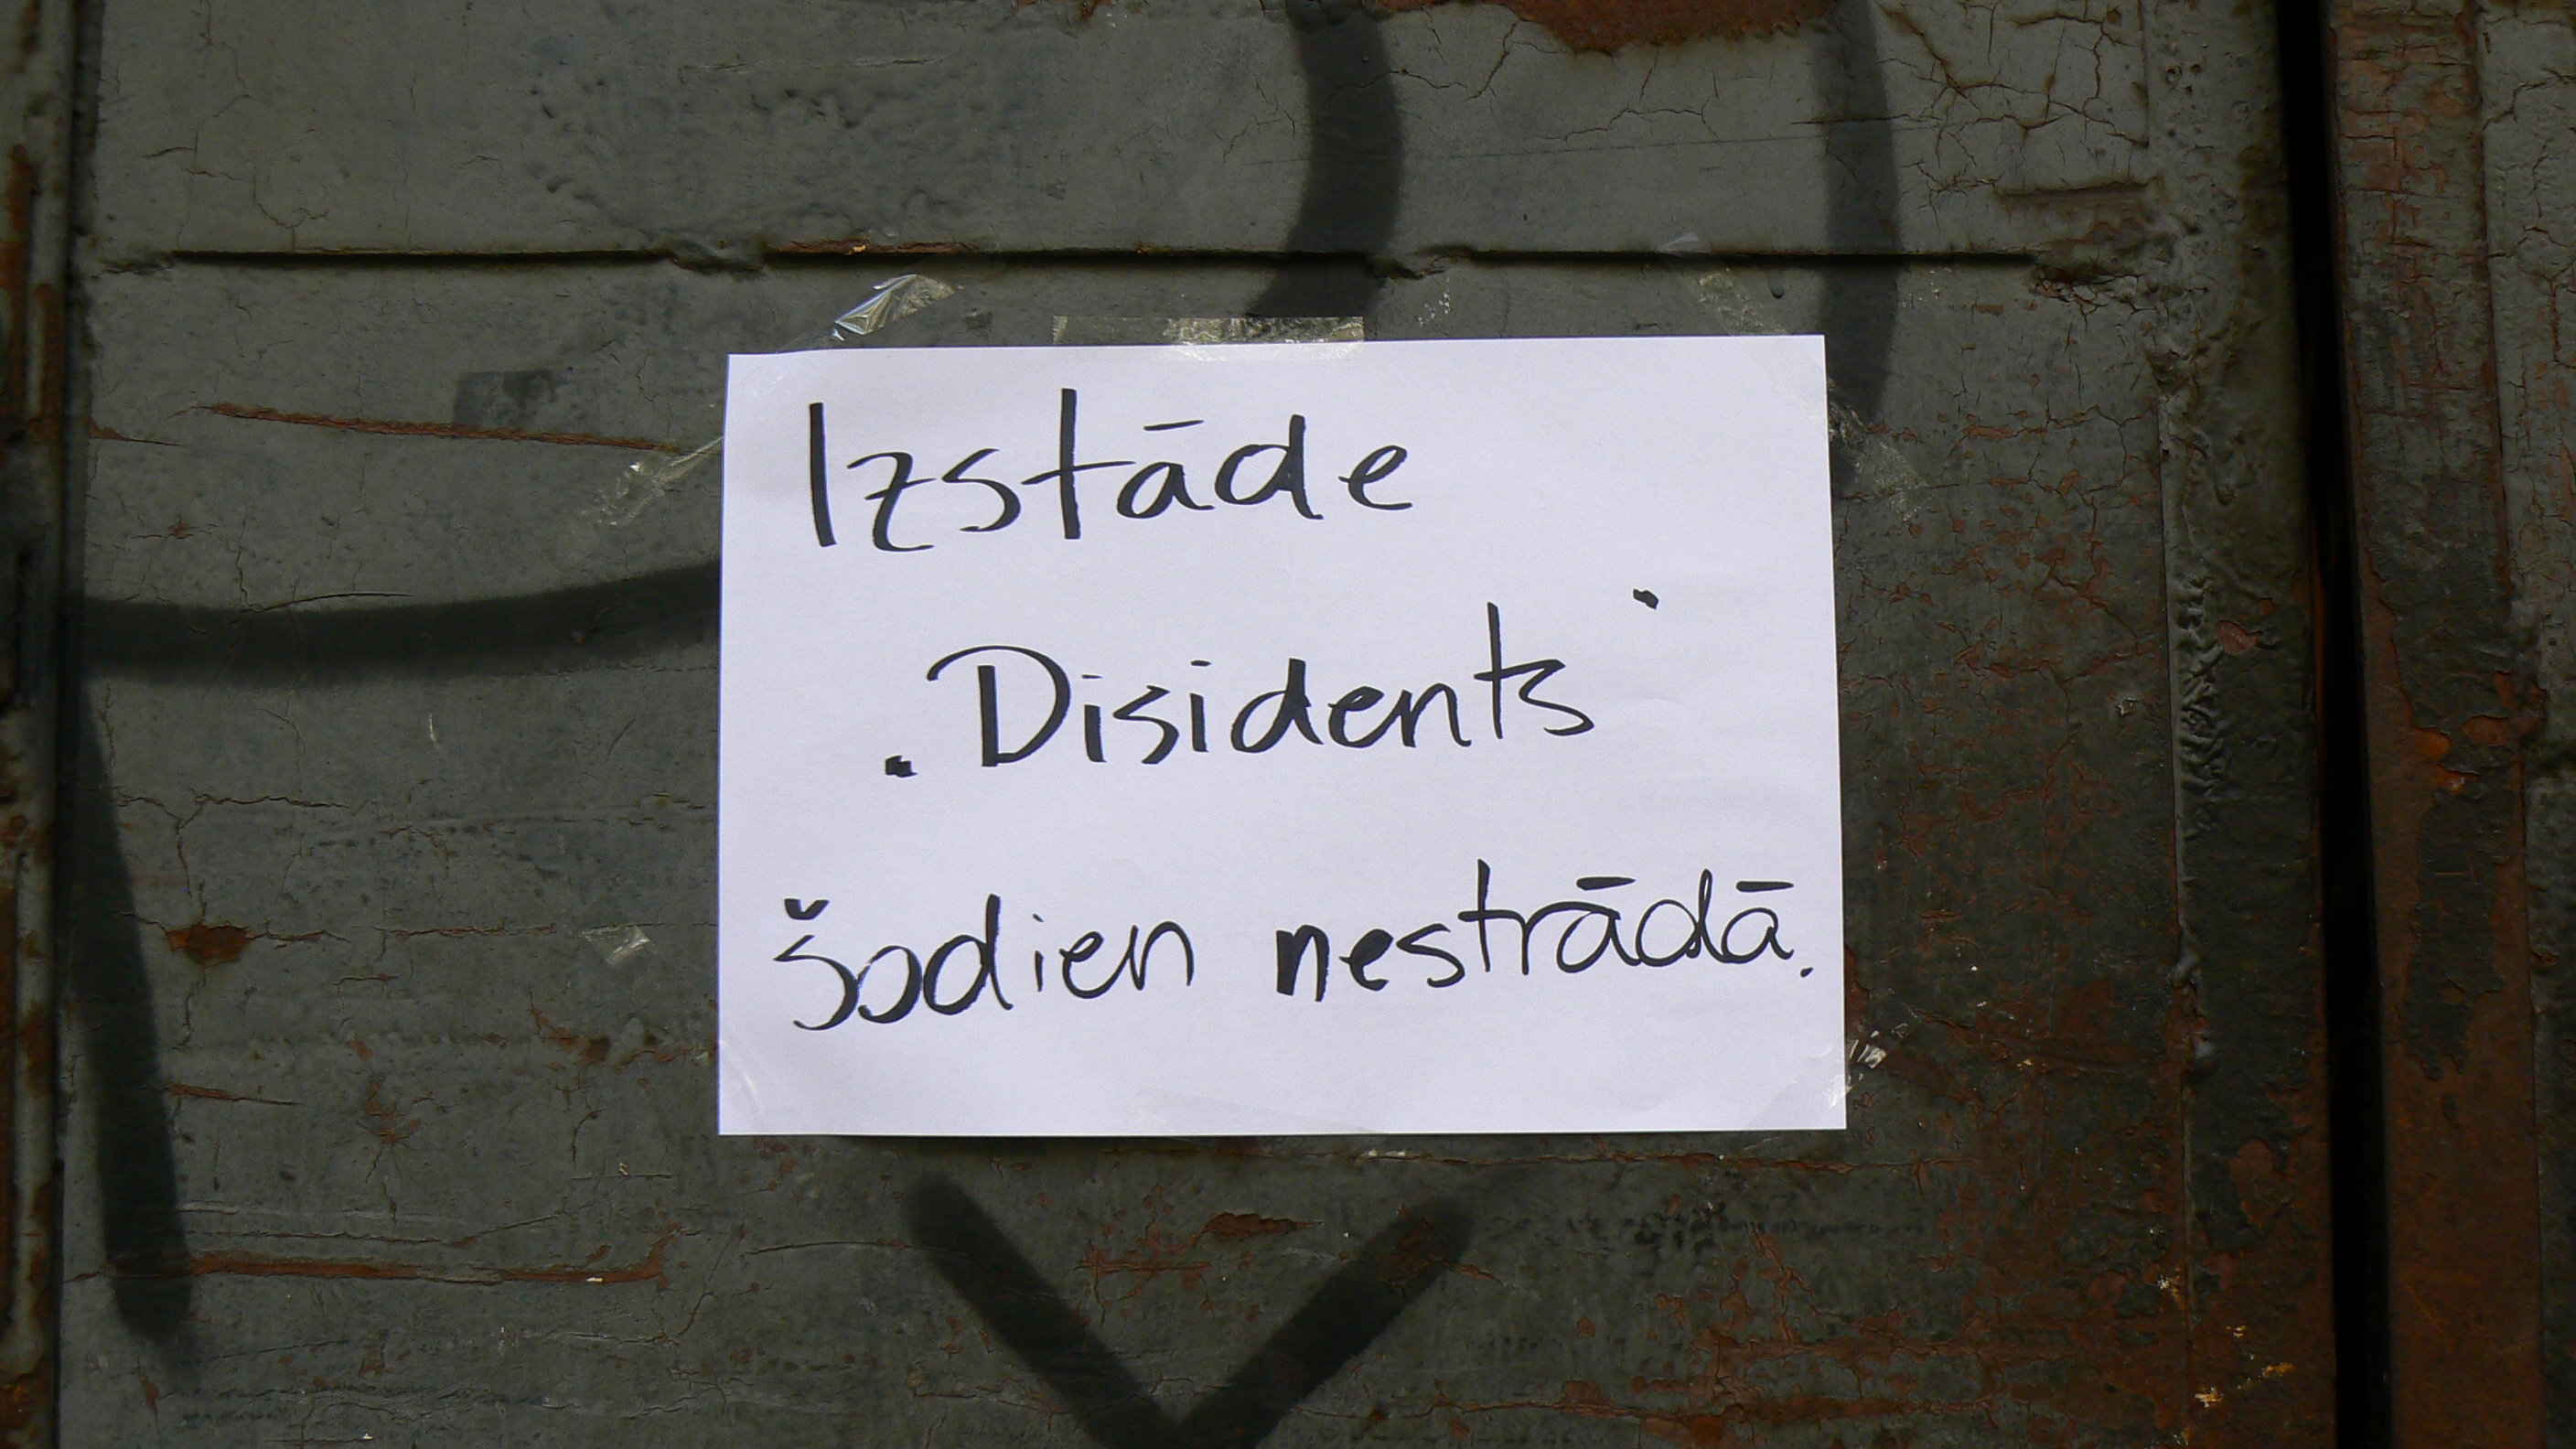 Izstāde
. Disidents '
šodien nestrādā.